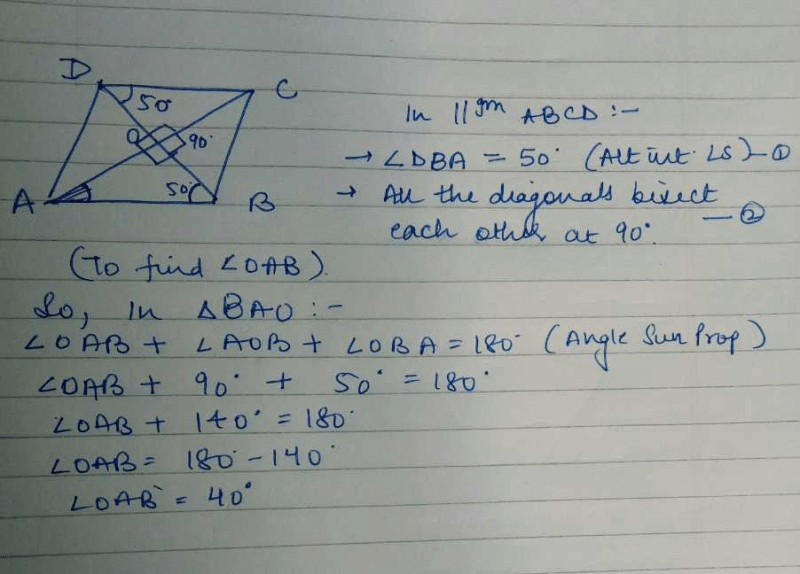 D
C
50
O
90°
50°
A
B
In ||gm ABCD :-
→ ∠DBA = 50° (Alt int. ∠S) - ①
→ All the diagonals bisect
each other at 90°. - ②
(To find ∠OAB).
So, in △BAO :-
∠OAB + ∠AOB + ∠OBA = 180° (Angle Sun Prop)
∠OAB + 90° + 50° = 180°
∠OAB + 140° = 180°
∠OAB = 180° - 140°
∠OAB = 40°